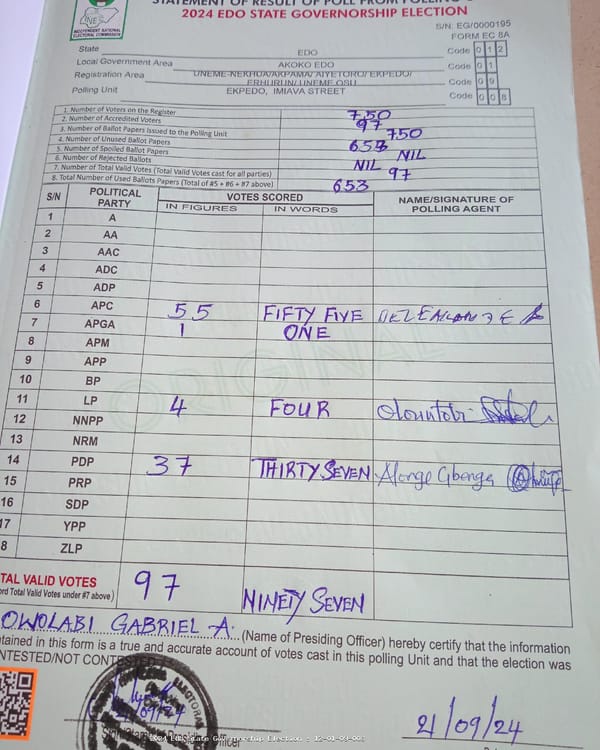 STATEMENT OF RESULT OF POLL FROM POLLING
2024 EDO STATE GOVERNORSHIP ELECTION
INEC
INDEPENDENT NATIONAL ELECTORAL COMMISSION
S/N: EG/0000195
FORM EC 8A
State EDO Code 0 1 2
Local Government Area AKOKO EDO Code 0 1
Registration Area UNEME-NEKHUA/AKPAMA/ AIYETORO/ EKPEDO/ ERHURUN/ UNEME OSU Code 0 9
Polling Unit EKPEDO, IMIAVA STREET Code 0 0 8
1. Number of Voters on the Register 750
2. Number of Accredited Voters 97
3. Number of Ballot Papers Issued to the Polling Unit 750
4. Number of Unused Ballot Papers 653
5. Number of Spoiled Ballot Papers NIL
6. Number of Rejected Ballots NIL
7. Number of Total Valid Votes (Total Valid Votes cast for all parties) 97
8. Total Number of Used Ballots Papers (Total of #5 + #6 + #7 above) 653
S/N POLITICAL PARTY VOTES SCORED NAME/SIGNATURE OF POLLING AGENT
IN FIGURES IN WORDS
1 A
2 AA
3 AAC
4 ADC
5 ADP
6 APC 55 FIFTY FIVE
7 APGA 1 ONE
8 APM
9 APP
10 BP
11 LP 4 FOUR Olouutobi
12 NNPP
13 NRM
14 PDP 37 THIRTY SEVEN Alonge Gbenga
15 PRP
16 SDP
17 YPP
8 ZLP
ORIGINAL
TAL VALID VOTES 97 NINETY SEVEN
ord Total Valid Votes under #7 above)
OWOLABI GABRIEL A. (Name of Presiding Officer) hereby certify that the information
ntained in this form is a true and accurate account of votes cast in this polling Unit and that the election was
NTESTED/NOT CONTESTED
21/09/24
21/09/24
Officer
2024 Edo State Governorship Election - 12-01-09-008